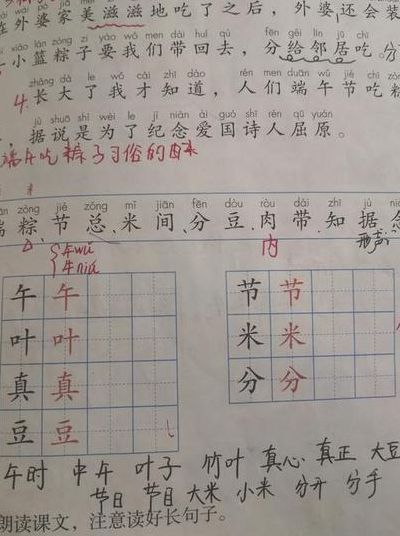 在外婆家美滋滋地吃了之后，外婆还会装
zhe yì xiǎo lán zòng zi yào wǒ men dài huí qù fēn gěi lín jū chī
一小篮粽子要我们带回去，分给邻居吃。
zhǎng dà le wǒ cái zhī dào rén men duān wǔ jié chī zòng
4.长大了我才知道，人们端午节吃粽
jù shuō shì wèi le jì niàn ài guó shī rén qū yuán
，据说是为了纪念爱国诗人屈原。
端午吃粽子习俗的由来
zòng jié zǒng mǐ jiān fēn dòu ròu dài zhī jù niàn
端粽节总米间分豆肉带知据念
午wǔ
牛niú
内
形声
午 午 节 节
叶 叶 米 米
真 真 分 分
豆 豆
午时 中午 叶子 竹叶 真心 真正 大豆
节日 节目 大米 小米 分开 分手
朗读课文，注意读好长句子。